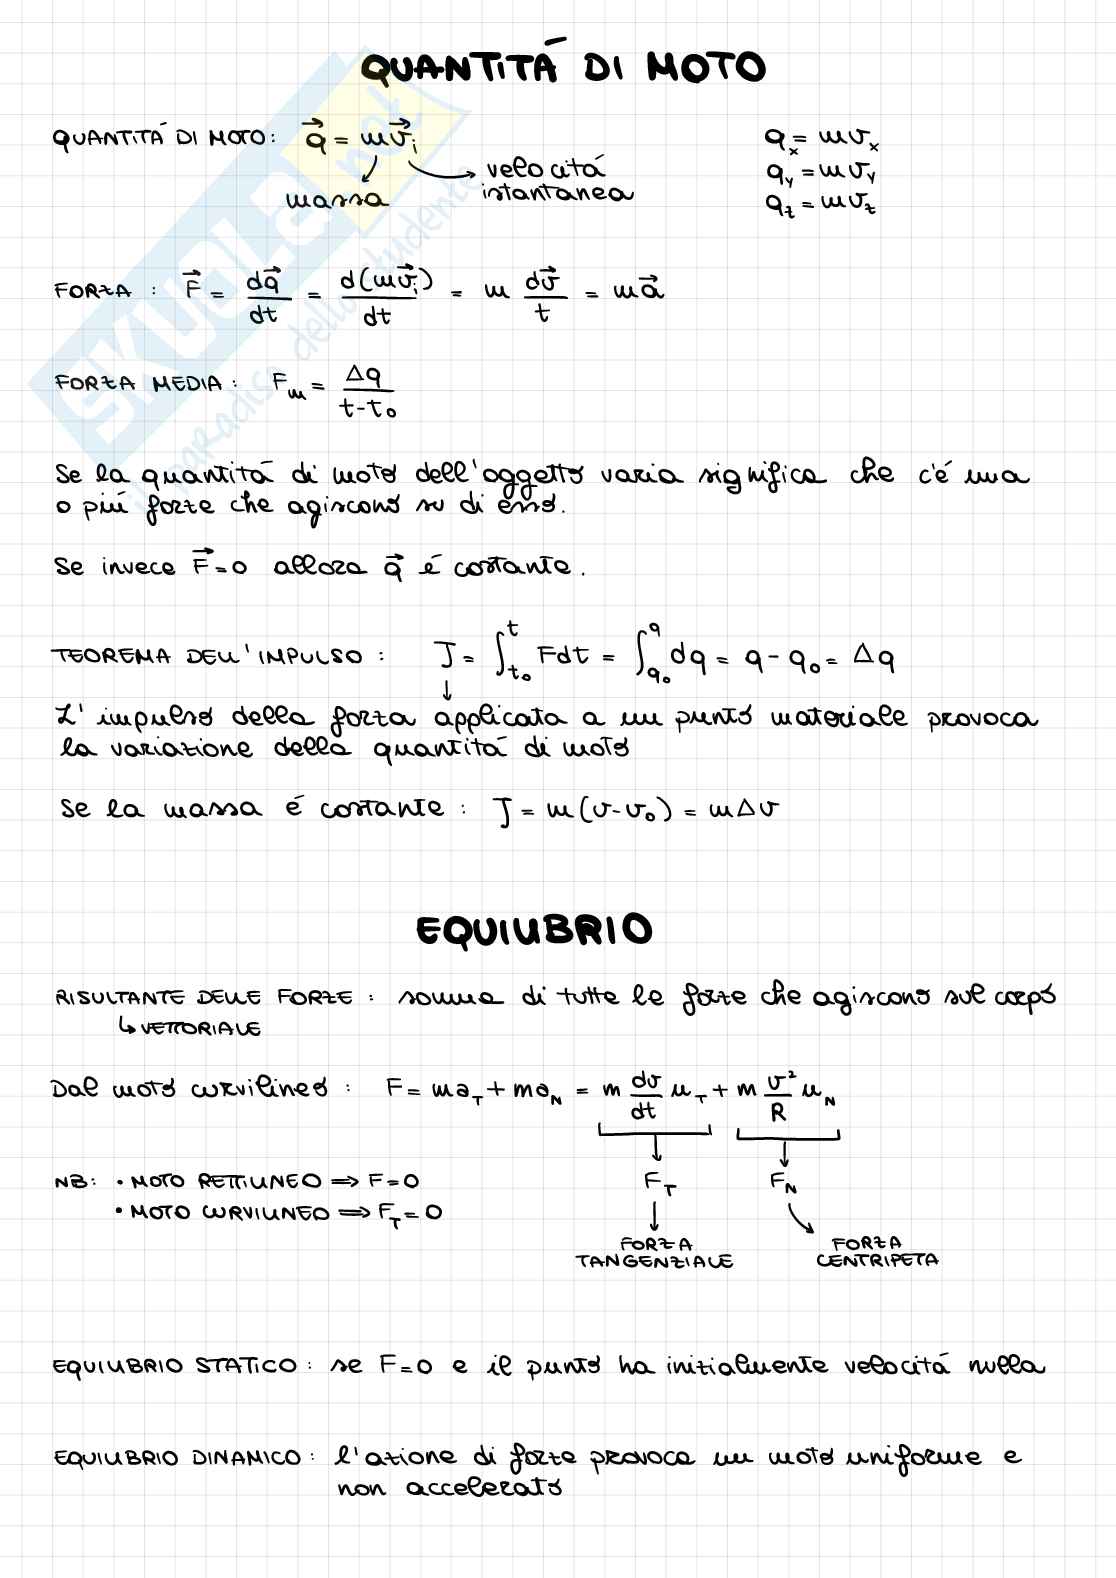 QUANTITÁ DI MOTO
QUANTITÁ DI MOTO: q⃗ = mv⃗ᵢ
massa
velocitá
istantanea
qₓ = mvₓ
qᵧ = mvᵧ
q_z = mv_z
FORZA : F⃗ = dq⃗/dt = d(mv⃗ᵢ)/dt = m dv⃗/t = ma⃗
FORZA MEDIA: Fₘ = Δq/(t-t₀)
Se la quantitá di moto dell'oggetto varia significa che c'é una
o piú forze che agiscono su di esso.
Se invece F⃗=0 allora q⃗ é costante.
TEOREMA DELL'IMPULSO : J = ∫_{t₀}^{t} Fdt = ∫_{q₀}^{q} dq = q - q₀ = Δq
↓
L'impulso della forza applicata a un punto materiale provoca
la variazione della quantitá di moto
Se la massa é costante : J = m(v-v₀) = mΔv
EQUILIBRIO
RISULTANTE DELLE FORZE : somma di tutte le forze che agiscono sul corpo
↳ VETTORIALE
Dal moto curvilineo : F = ma_T + ma_N = m dv/dt u_T + m v²/R u_N
NB: • MOTO RETTILINEO ⇒ F=0
• MOTO CURVILINEO ⇒ F_T=0
F_T
FORZA
TANGENZIALE
F_N
FORZA
CENTRIPETA
EQUILIBRIO STATICO : se F=0 e il punto ha inizialmente velocitá nulla
EQUILIBRIO DINAMICO : l'azione di forze provoca un moto uniforme e
non accelerato
SKUOLA.net
il paradiso dello studente